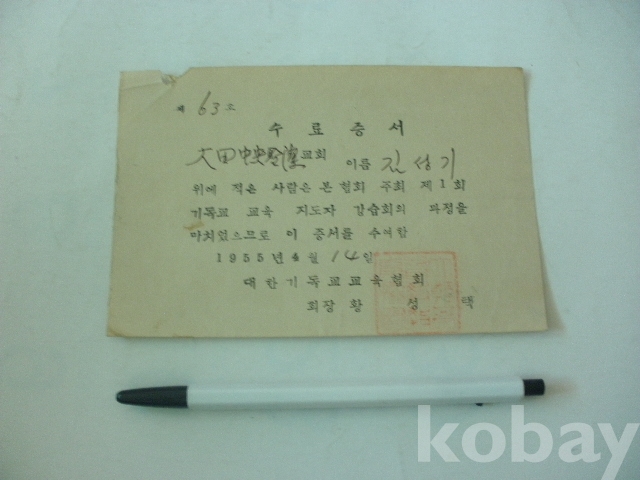 제 63 호
수료증서
大田中央 교회 이름 김성기
위에 적은 사람은 본 협회 주최 제1회
기독교 교육 지도자 강습회의 과정을
마치었으므로 이 증서를 수여함
1955년 4월 14일
대한기독교교육협회
회장 황 성 택
kobay